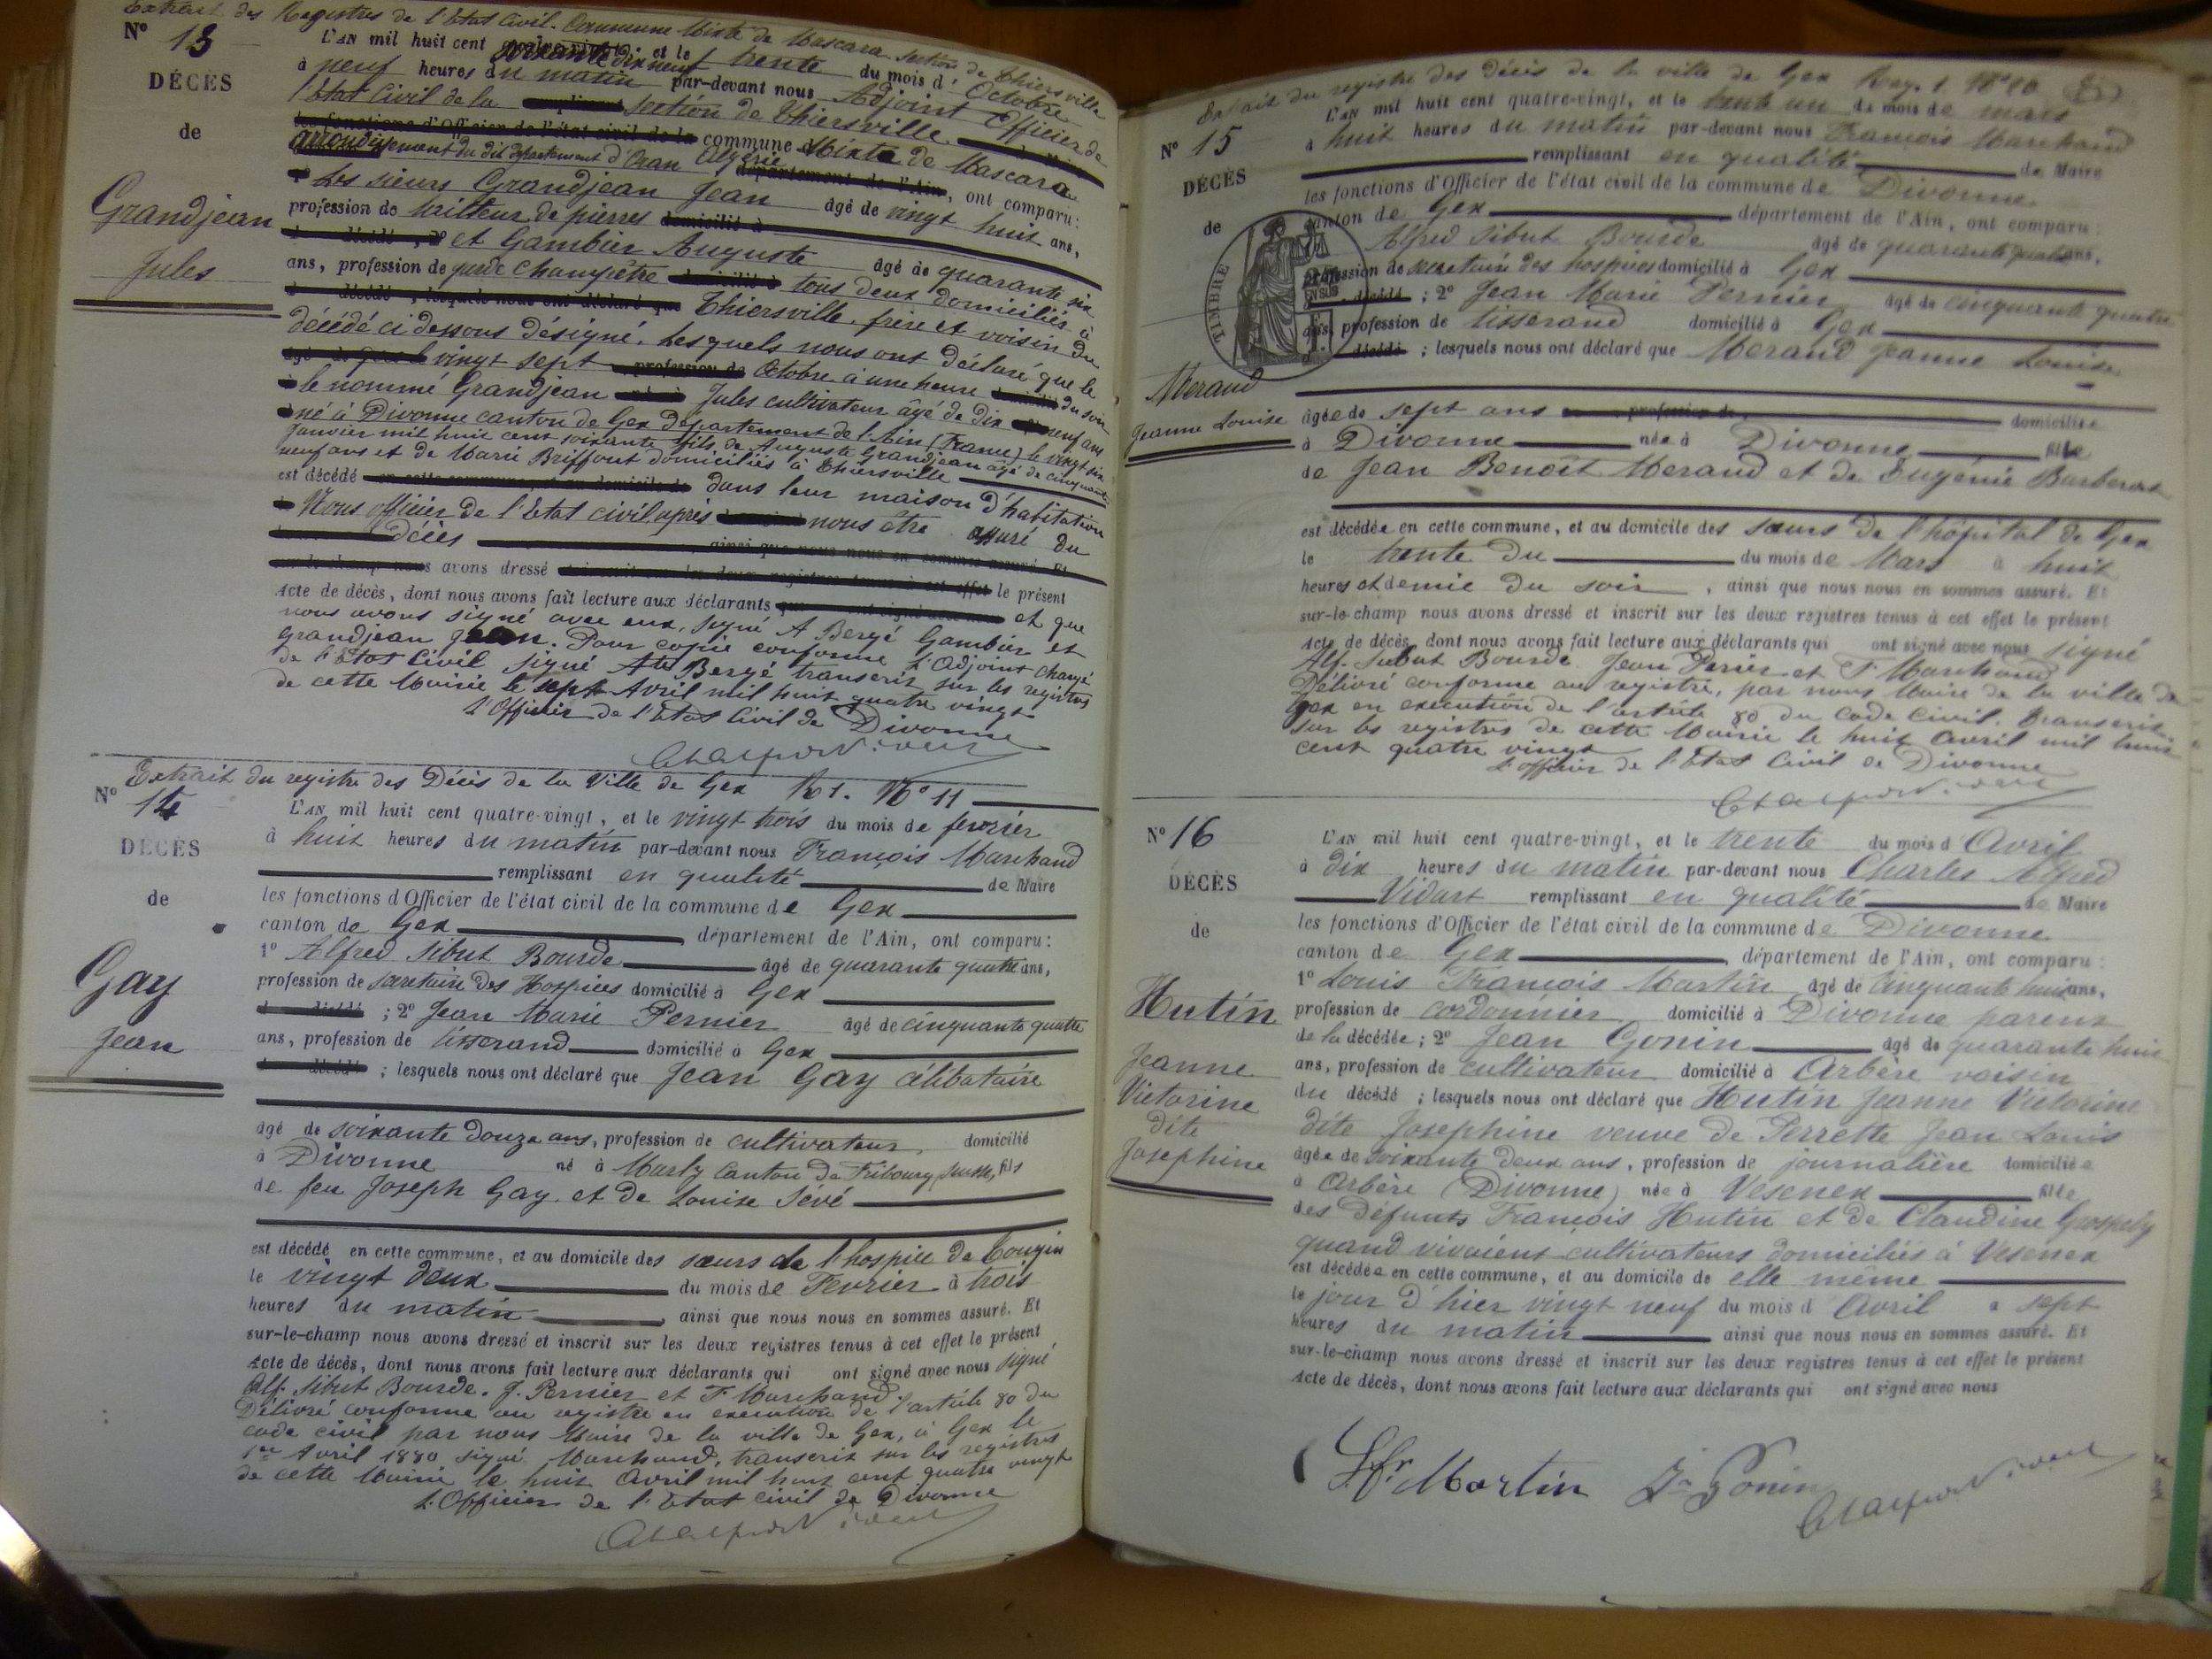 Extrait des Registres de l'Etat Civil. Commune Mixte de Mascara section de Thiersville
N° 13
DÉCÈS
de
Grandjean
Jules
L'AN mil huit cent soixante dix neuf et le trente du mois d'Octobre
à neuf heures du matin par-devant nous Adjoint Officier de
l'Etat Civil de la section de Thiersville
commune Mixte de Mascara
arrondissement du dit département d'Oran Algérie, ont comparu:
Les sieurs Grandjean Jean âgé de vingt huit ans,
profession de tailleur de pierres
et Gambier Auguste âgé de quarante six
ans, profession de garde champêtre tous deux domiciliés à
Thiersville, frère et voisin du
décédé ci dessous désigné. Lesquels nous ont déclaré que le
vingt sept Octobre à une heure du soir
le nommé Grandjean Jules cultivateur âgé de dix neuf ans
né à Divonne canton de Gex département de l'Ain (France) le vingt six
Janvier mil huit cent soixante fils de Auguste Grandjean âgé de cinquante
neuf ans et de Marie Briffout domiciliés à Thiersville
est décédé dans leur maison d'habitation
Nous officier de l'Etat civil, après nous être assuré du
décès
avons dressé le présent
Acte de décès, dont nous avons fait lecture aux déclarants et que
nous avons signé avec eux, signé A Bergé Gambier et
Grandjean Jean. Pour copie conforme L'Adjoint chargé
de l'Etat Civil signé Bergé transcrit sur les registres
de cette Mairie le sept Avril mil huit quatre vingt
L'Officier de l'Etat Civil de Divonne
Extrait du registre des Décès de la Ville de Gex R 1. N° 11
N° 14
DÉCÈS
de
Gay
Jean
L'AN mil huit cent quatre-vingt, et le vingt trois du mois de fevrier
à huit heures du matin par-devant nous François Marchand
remplissant en qualité de Maire
les fonctions d'Officier de l'état civil de la commune de Gex
canton de Gex département de l'Ain, ont comparu:
1° Alfred Sibut Bourde âgé de quarante quatre ans,
profession de secretaire des Hospices domicilié à Gex
; 2° Jean Marie Pernier âgé de cinquante quatre
ans, profession de tisserand domicilié à Gex
; lesquels nous ont déclaré que Jean Gay célibataire
âgé de soixante douze ans, profession de cultivateur domicilié
à Divonne né à Marly Canton de Fribourg, Suisse, fils
de feu Joseph Gay et de Louise Sévé
est décédé en cette commune, et au domicile des sœurs de l'hospice de Tougin
le vingt deux du mois de Fevrier à trois
heures du matin ainsi que nous nous en sommes assuré. Et
sur-le-champ nous avons dressé et inscrit sur les deux registres tenus à cet effet le présent
Acte de décès, dont nous avons fait lecture aux déclarants qui ont signé avec nous signé
Alf. Sibut Bourde. J. Pernier et F. Marchand.
Délivré conforme au registre en execution de l'article 80 du
code civil par nous Maire de la ville de Gex, à Gex le
1er Avril 1880 signé Marchand, transcrit sur les registres
de cette Mairie le huit Avril mil huit cent quatre vingt
L'Officier de l'Etat civil de Divonne
Extrait du registre des décès de la ville de Gex Reg. 1. N° 20
N° 15
DÉCÈS
de
TIMBRE
Merand
Jeanne Louise
L'AN mil huit cent quatre-vingt, et le trente un du mois de mars
à huit heures du matin par-devant nous François Marchand
remplissant en qualité de Maire
les fonctions d'Officier de l'état civil de la commune de Divonne
canton de Gex département de l'Ain, ont comparu:
Alfred Sibut Bourde âgé de quarante quatre ans,
profession de secretaire des hospices domicilié à Gex
; 2° Jean Marie Pernier âgé de cinquante quatre
ans, profession de tisserand domicilié à Gex
; lesquels nous ont déclaré que Merand Jeanne Louise
âgée de sept ans domiciliée
à Divonne née à Divonne fille
de Jean Benoît Merand et de Eugénie
est décédée en cette commune, et au domicile des sœurs de l'hôpital de Gex
le trente du du mois de Mars à huit
heures et demie du soir, ainsi que nous nous en sommes assuré. Et
sur-le-champ nous avons dressé et inscrit sur les deux registres tenus à cet effet le présent
Acte de décès, dont nous avons fait lecture aux déclarants qui ont signé avec nous signé
Alf. Sibut Bourde Jean Pernier et F Marchand
Délivré conforme au registre, par nous Maire de la ville de
Gex en execution de l'article 80 du Code Civil. Transcrit
sur les registres de cette Mairie le huit Avril mil huit
cent quatre vingt
L'officier de l'Etat Civil de Divonne
N° 16
DÉCÈS
de
Hutin
Jeanne
Victorine
dite
Josephine
L'AN mil huit cent quatre-vingt, et le trente du mois d'Avril
à dix heures du matin par-devant nous Charles Alfred
Vidart remplissant en qualité de Maire
les fonctions d'Officier de l'état civil de la commune de Divonne
canton de Gex département de l'Ain, ont comparu:
1° Louis François Martin âgé de Cinquante huit ans,
profession de cordonnier domicilié à Divonne parent
de la décédée; 2° Jean Gonin âgé de quarante huit
ans, profession de cultivateur domicilié à Arbère voisin
du décédé ; lesquels nous ont déclaré que Hutin Jeanne Victorine
dite Josephine veuve de Perrette Jean Louis
âgée de soixante deux ans, profession de journalière domiciliée
à Arbère (Divonne) née à Vesenex fille
des défunts François Hutin et de Claudine
quand vivaient cultivateurs domiciliés à Vesenex
est décédée en cette commune, et au domicile de elle même
le jour d'hier vingt neuf du mois d'Avril à sept
heures du matin ainsi que nous nous en sommes assuré. Et
sur-le-champ nous avons dressé et inscrit sur les deux registres tenus à cet effet le présent
Acte de décès, dont nous avons fait lecture aux déclarants qui ont signé avec nous
Martin Gonin